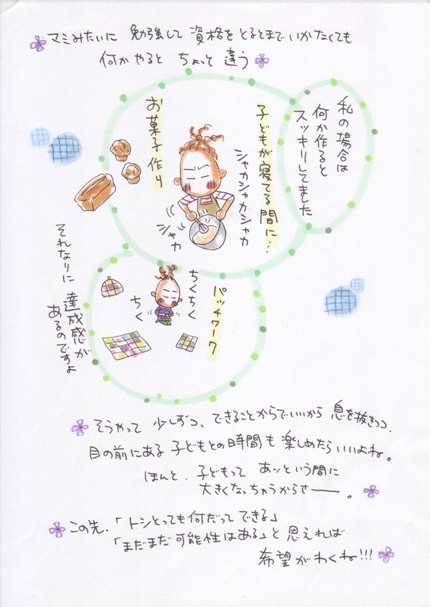 マミみたいに 勉強して 資格をとるとまで いかなくても
何かやると ちょっと 違う
私の場合は
何か作ると
スッキリしてました
子どもが寝てる間に…
お菓子作り
シャカシャカシャカ
シャカ
パッチワーク
ちくちく
ちく
それなりに
達成感が
あるのですよ
そうやって 少しずつ、できることからでいいから 息を抜きつつ
目の前にある 子どもとの時間も 楽しめたらいいよね。
ほんと、子どもって アッという間に
大きくなっちゃうからさー。
この先、「トシとっても何だってできる」
「まだまだ可能性はある」と 思えれば
希望がわくね!!!